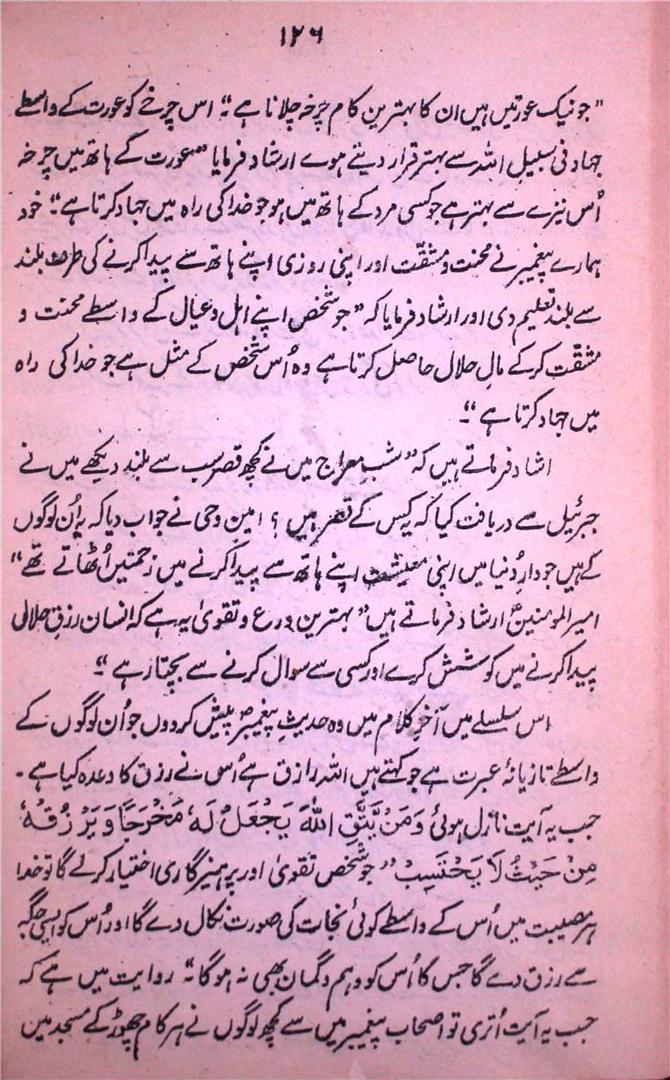 ۱۲۶
”جو نیک عورتیں ہیں ان کا بہترین کام چرخہ چلانا ہے“ اس چرخے کو عورت کے واسطے
جہاد فی سبیل اللہ سے بہتر قرار دیتے ہوے ارشاد فرمایا ”عورت کے ہاتھ میں چرخہ
اُس نیزے سے بہتر ہے جو کسی مرد کے ہاتھ میں ہو جو خدا کی راہ میں جہاد کرتا ہے“ خود
ہمارے پیغمبر نے محنت و مشقّت اور اپنی روزی اپنے ہاتھ سے پیدا کرنے کی طرف بلند
سے بلند تعلیم دی اور ارشاد فرمایا کہ ”جو شخص اپنے اہل و عیال کے واسطے محنت و
مشقّت کرکے مال حلال حاصل کرتا ہے وہ اُس شخص کے مثل ہے جو خدا کی راہ
میں جہاد کرتا ہے“۔
اشاد فرماتے ہیں کہ ”شب معراج میں نے کچھ قصر سب سے بلند دیکھے میں نے
جبرئیل سے دریافت کیا کہ یہ کس کے قصر ہیں ؟ امین وحی نے جواب دیا کہ یہ اُن لوگوں
کے ہیں جو دار دُنیا میں اپنی معیشت اپنے ہاتھ سے پیدا کرنے میں زحمتیں اُٹھاتے تھے“
امیر المومنینؑ ارشاد فرماتے ہیں ”بہترین ورع و تقویٰ یہ ہے کہ انسان رزق حلال
پیدا کرنے میں کوشش کرے اور کسی سے سوال کرنے سے بچتا رہے“۔
اس سلسلے میں آخر کلام میں وہ حدیث پیغمبرؐ پیش کردوں جو اُن لوگوں کے
واسطے تازیانۂ عبرت ہے جو کہتے ہیں اللہ رازق ہے اُس نے رزق کا وعدہ کیا ہے۔
جب یہ آیت نازل ہوئی وَمَنْ يَّتَّقِ اللّٰهَ يَجْعَلْ لَهٗ مَخْرَجًا وَيَرْزُقْهُ
مِنْ حَيْثُ لَا يَحْتَسِبْ ”جو شخص تقویٰ اور پرہیزگاری اختیار کرلے گا تو خدا
ہر مصیبت میں اُس کے واسطے کوئی نجات کی صورت نکال دے گا اور اُس کو ایسی جگہ
سے رزق دے گا جس کا اُس کو وہم و گمان بھی نہ ہوگا“ روایت میں ہے کہ
جب یہ آیت اُتری تو اصحاب پیغمبر میں سے کچھ لوگوں نے ہر کام چھوڑ کے مسجد میں